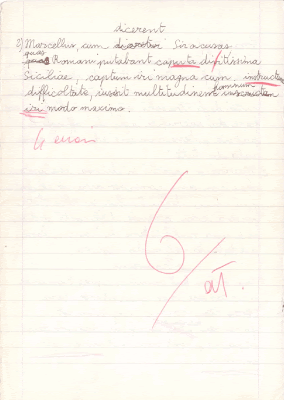 dicerent
2) Marcellus, cum Siracusas
quas Romani putabant caputa ditissima
Siciliae, captum iri magna cum
difficoltate, iussit multitudinem hominum
iri modo maximo.
4 errori
6/